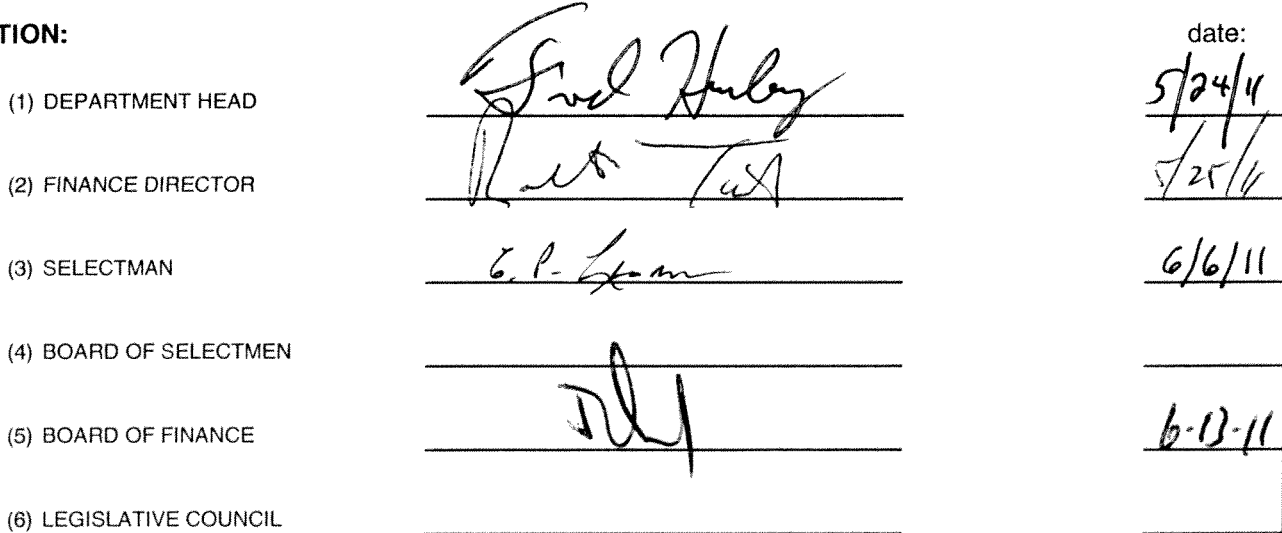 TION: date:
(1) DEPARTMENT HEAD Fred Hurley 5/24/11
(2) FINANCE DIRECTOR 5/25/11
(3) SELECTMAN 6/6/11
(4) BOARD OF SELECTMEN
(5) BOARD OF FINANCE 6-13-11
(6) LEGISLATIVE COUNCIL